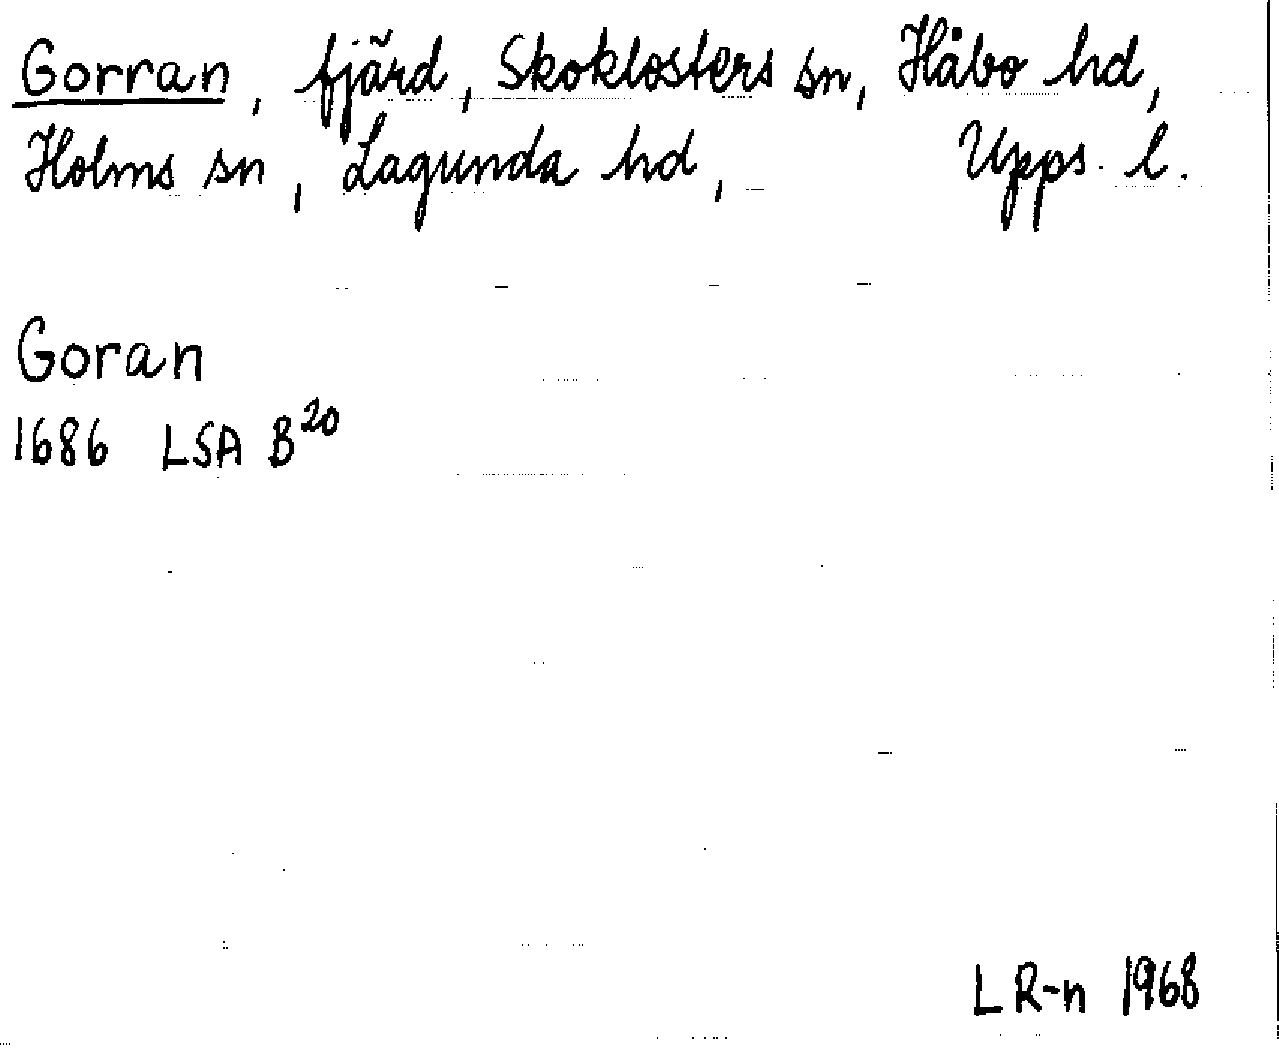 Gorran, fjärd, Skoklosters sn, Håbo hd,
Holms sn, Lagunda hd, Upps. l.
Goran
1686 LSA B²⁰
L R-n 1968